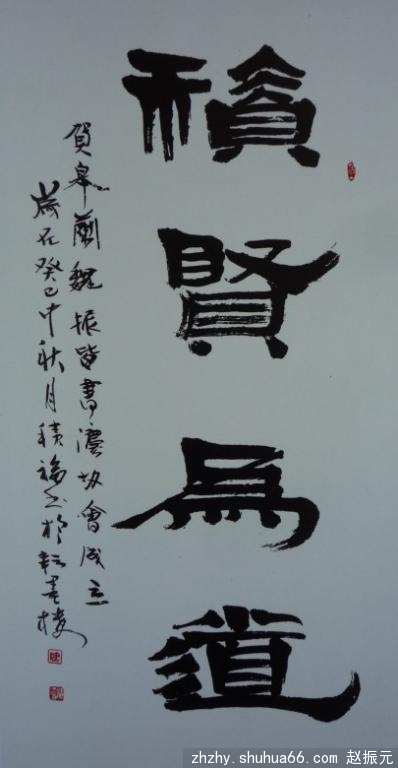 積賢為道
賀皋蘭魏振皆書灋會成立
歲在癸巳中秋月積福书於墨樓
zhzhy.shuhua66.com 赵振元